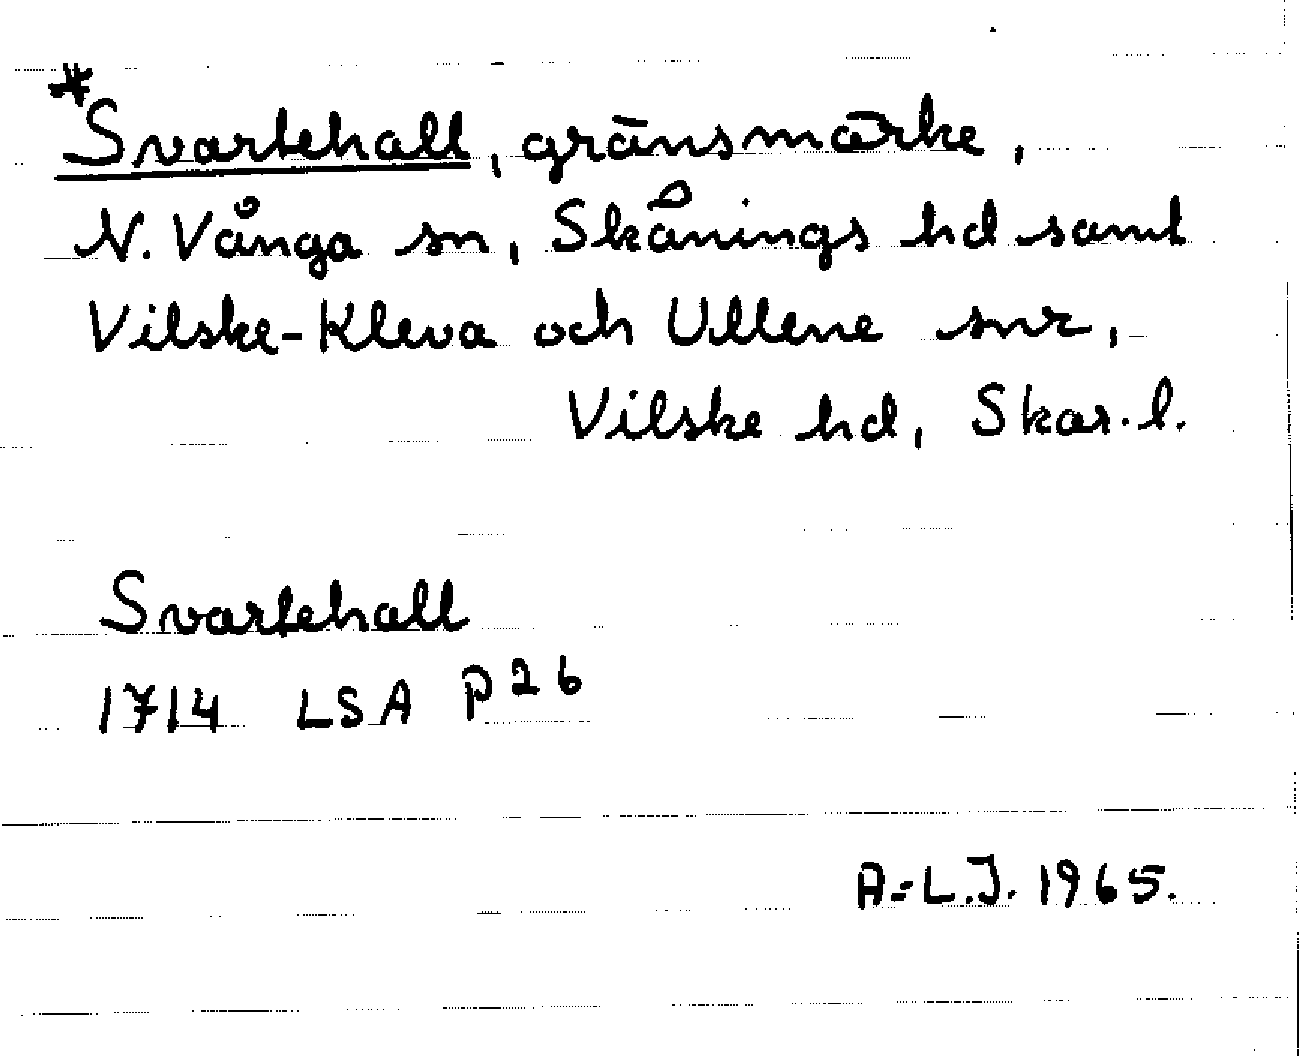 *Svartehall, gränsmärke,
N. Vånga sn, Skånings hd samt
Vilske-Kleva och Ullene snr,
Vilske hd, Skar. l.
Svartehall
1714 LSA P 26
A-L.J. 1965.